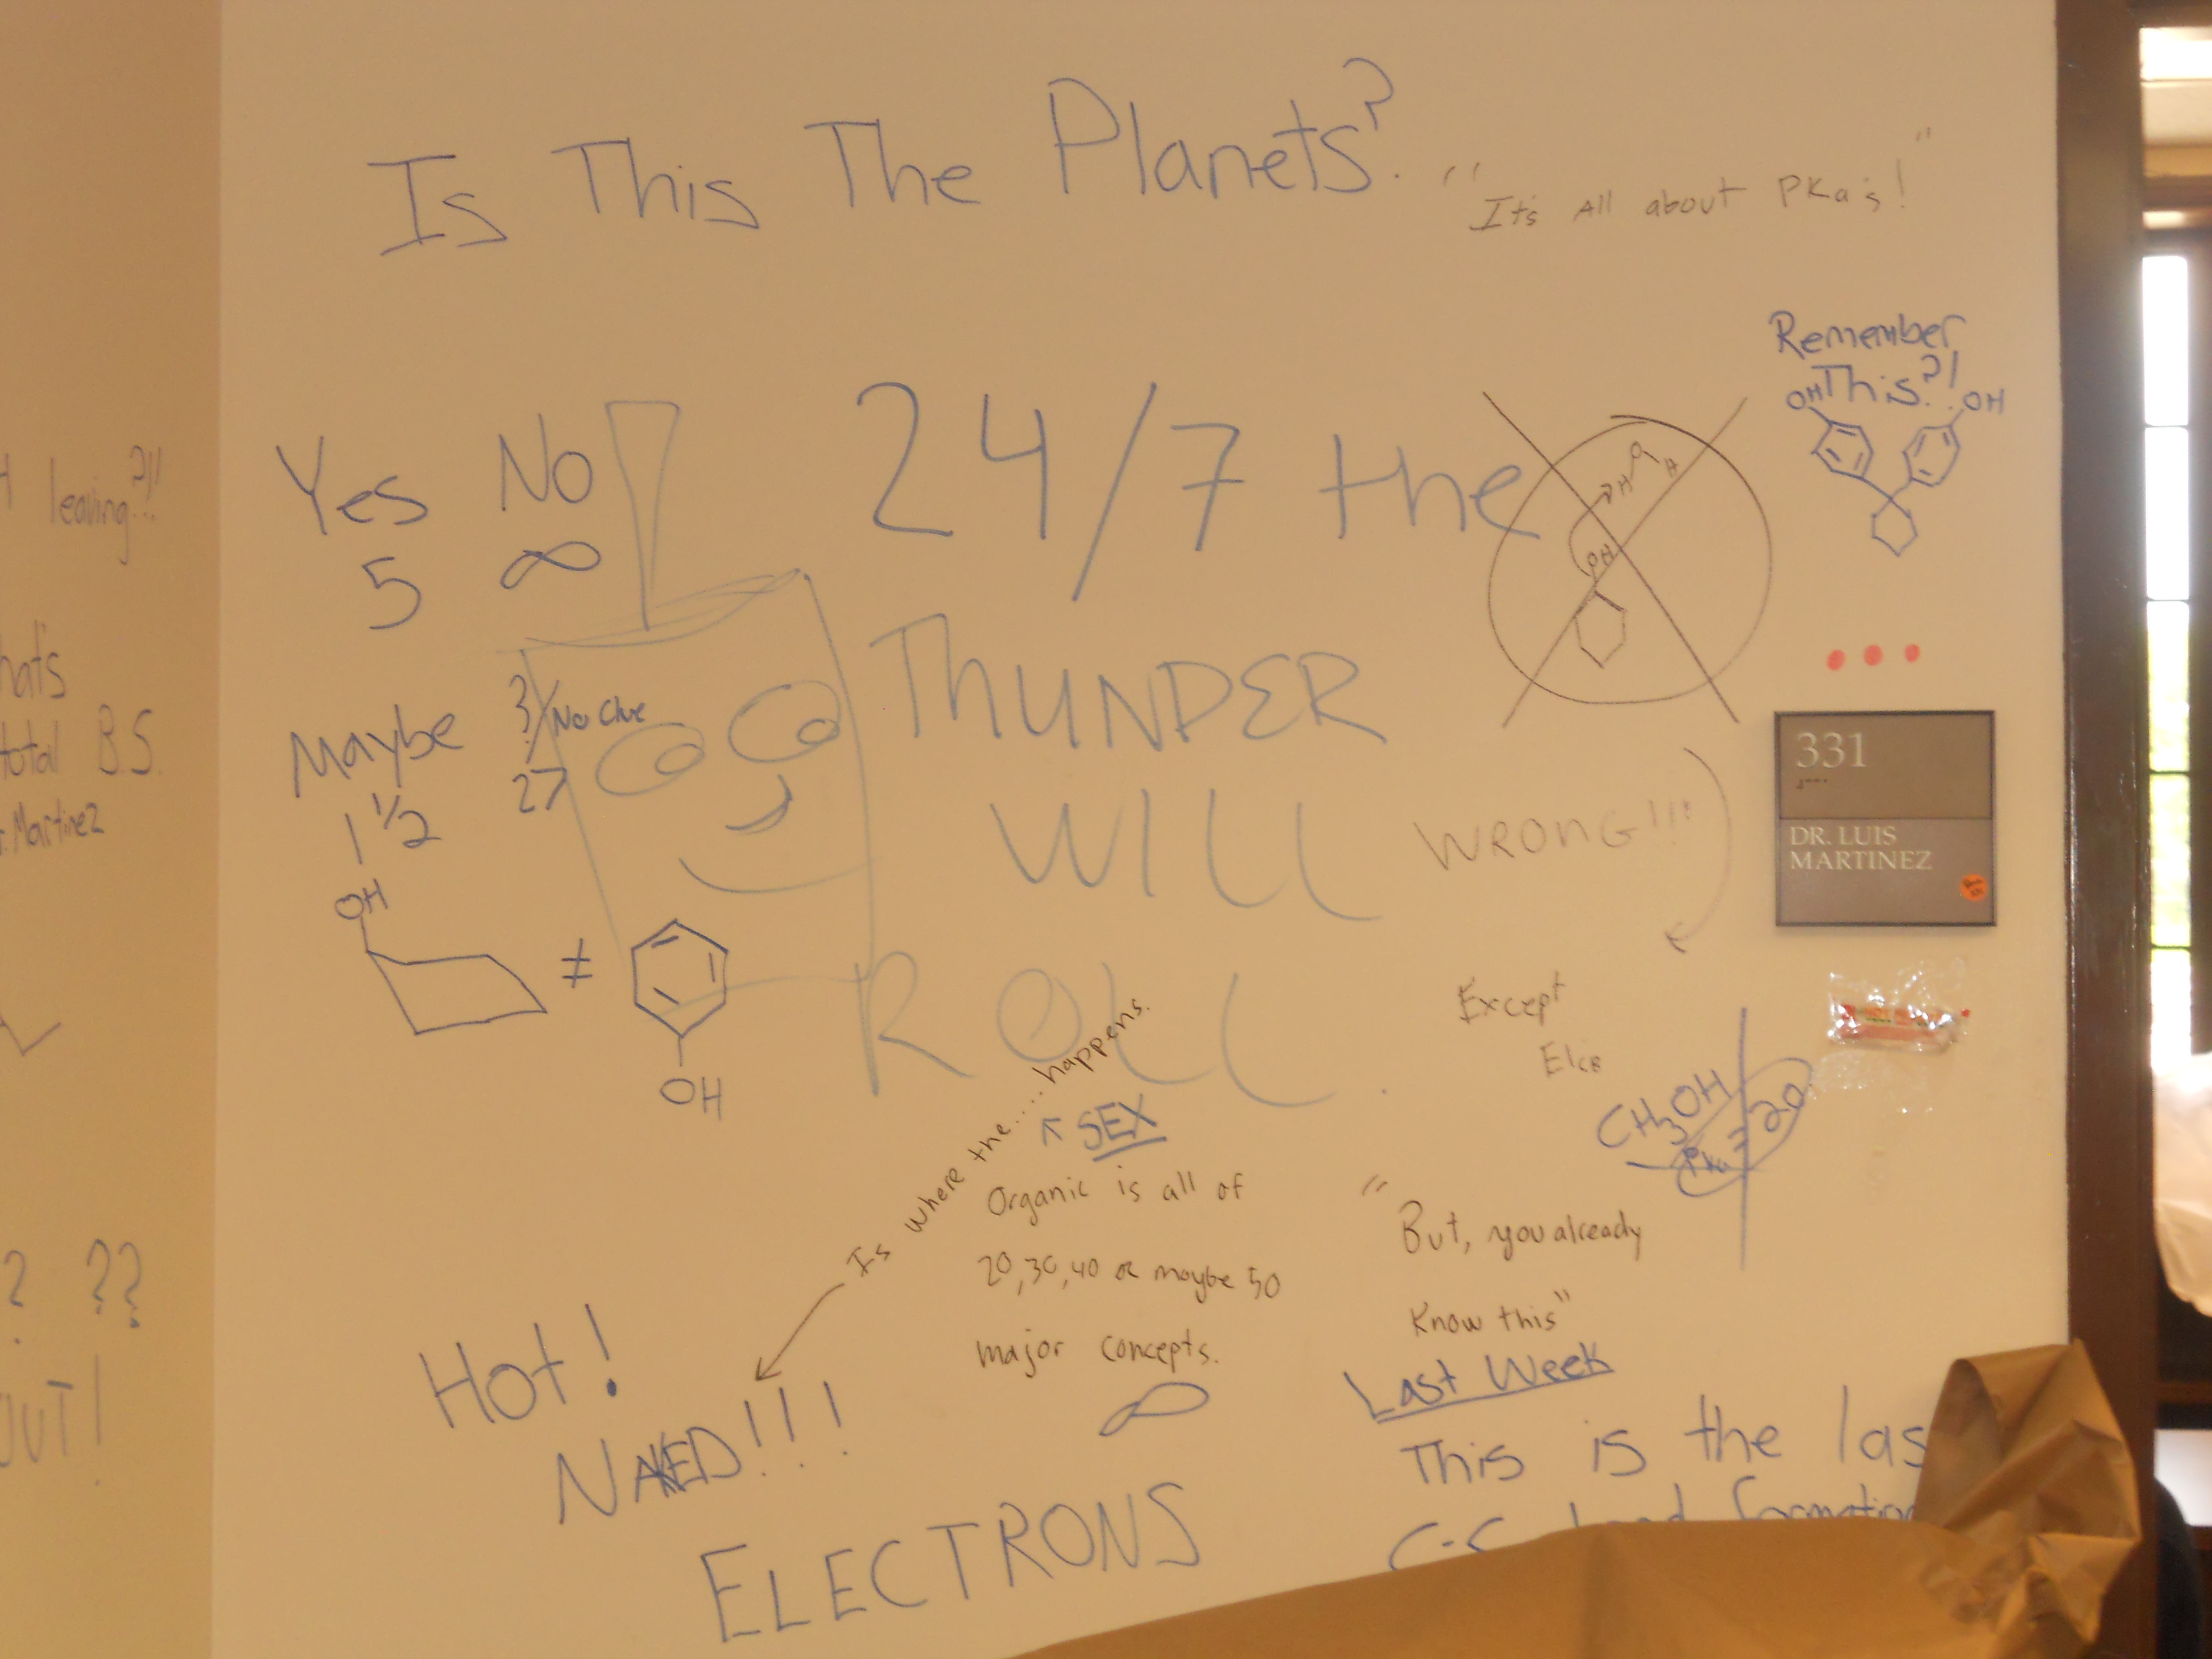 Is This The Planets?
"It's All about PKa's!"
Remember
This?!
OH OH
Yes No
5 ∞
24/7 the
H O H
OH
Maybe ?/No Clue
1 1/2 27
THUNDER
WILL
ROLL.
WRONG!!!
331
DR. LUIS
MARTINEZ
OH
≠
OH
Except
CH3OH
20
Is where the....happens.
SEX
Organic is all of
20,30,40 or maybe 50
major concepts.
∞
"But, you already
Know this"
Last Week
This is the las
C-C bond formation
Hot!
NAKED!!!
ELECTRONS
leaving?!!
hats
total B.S.
Martinez
? ??
OUT!